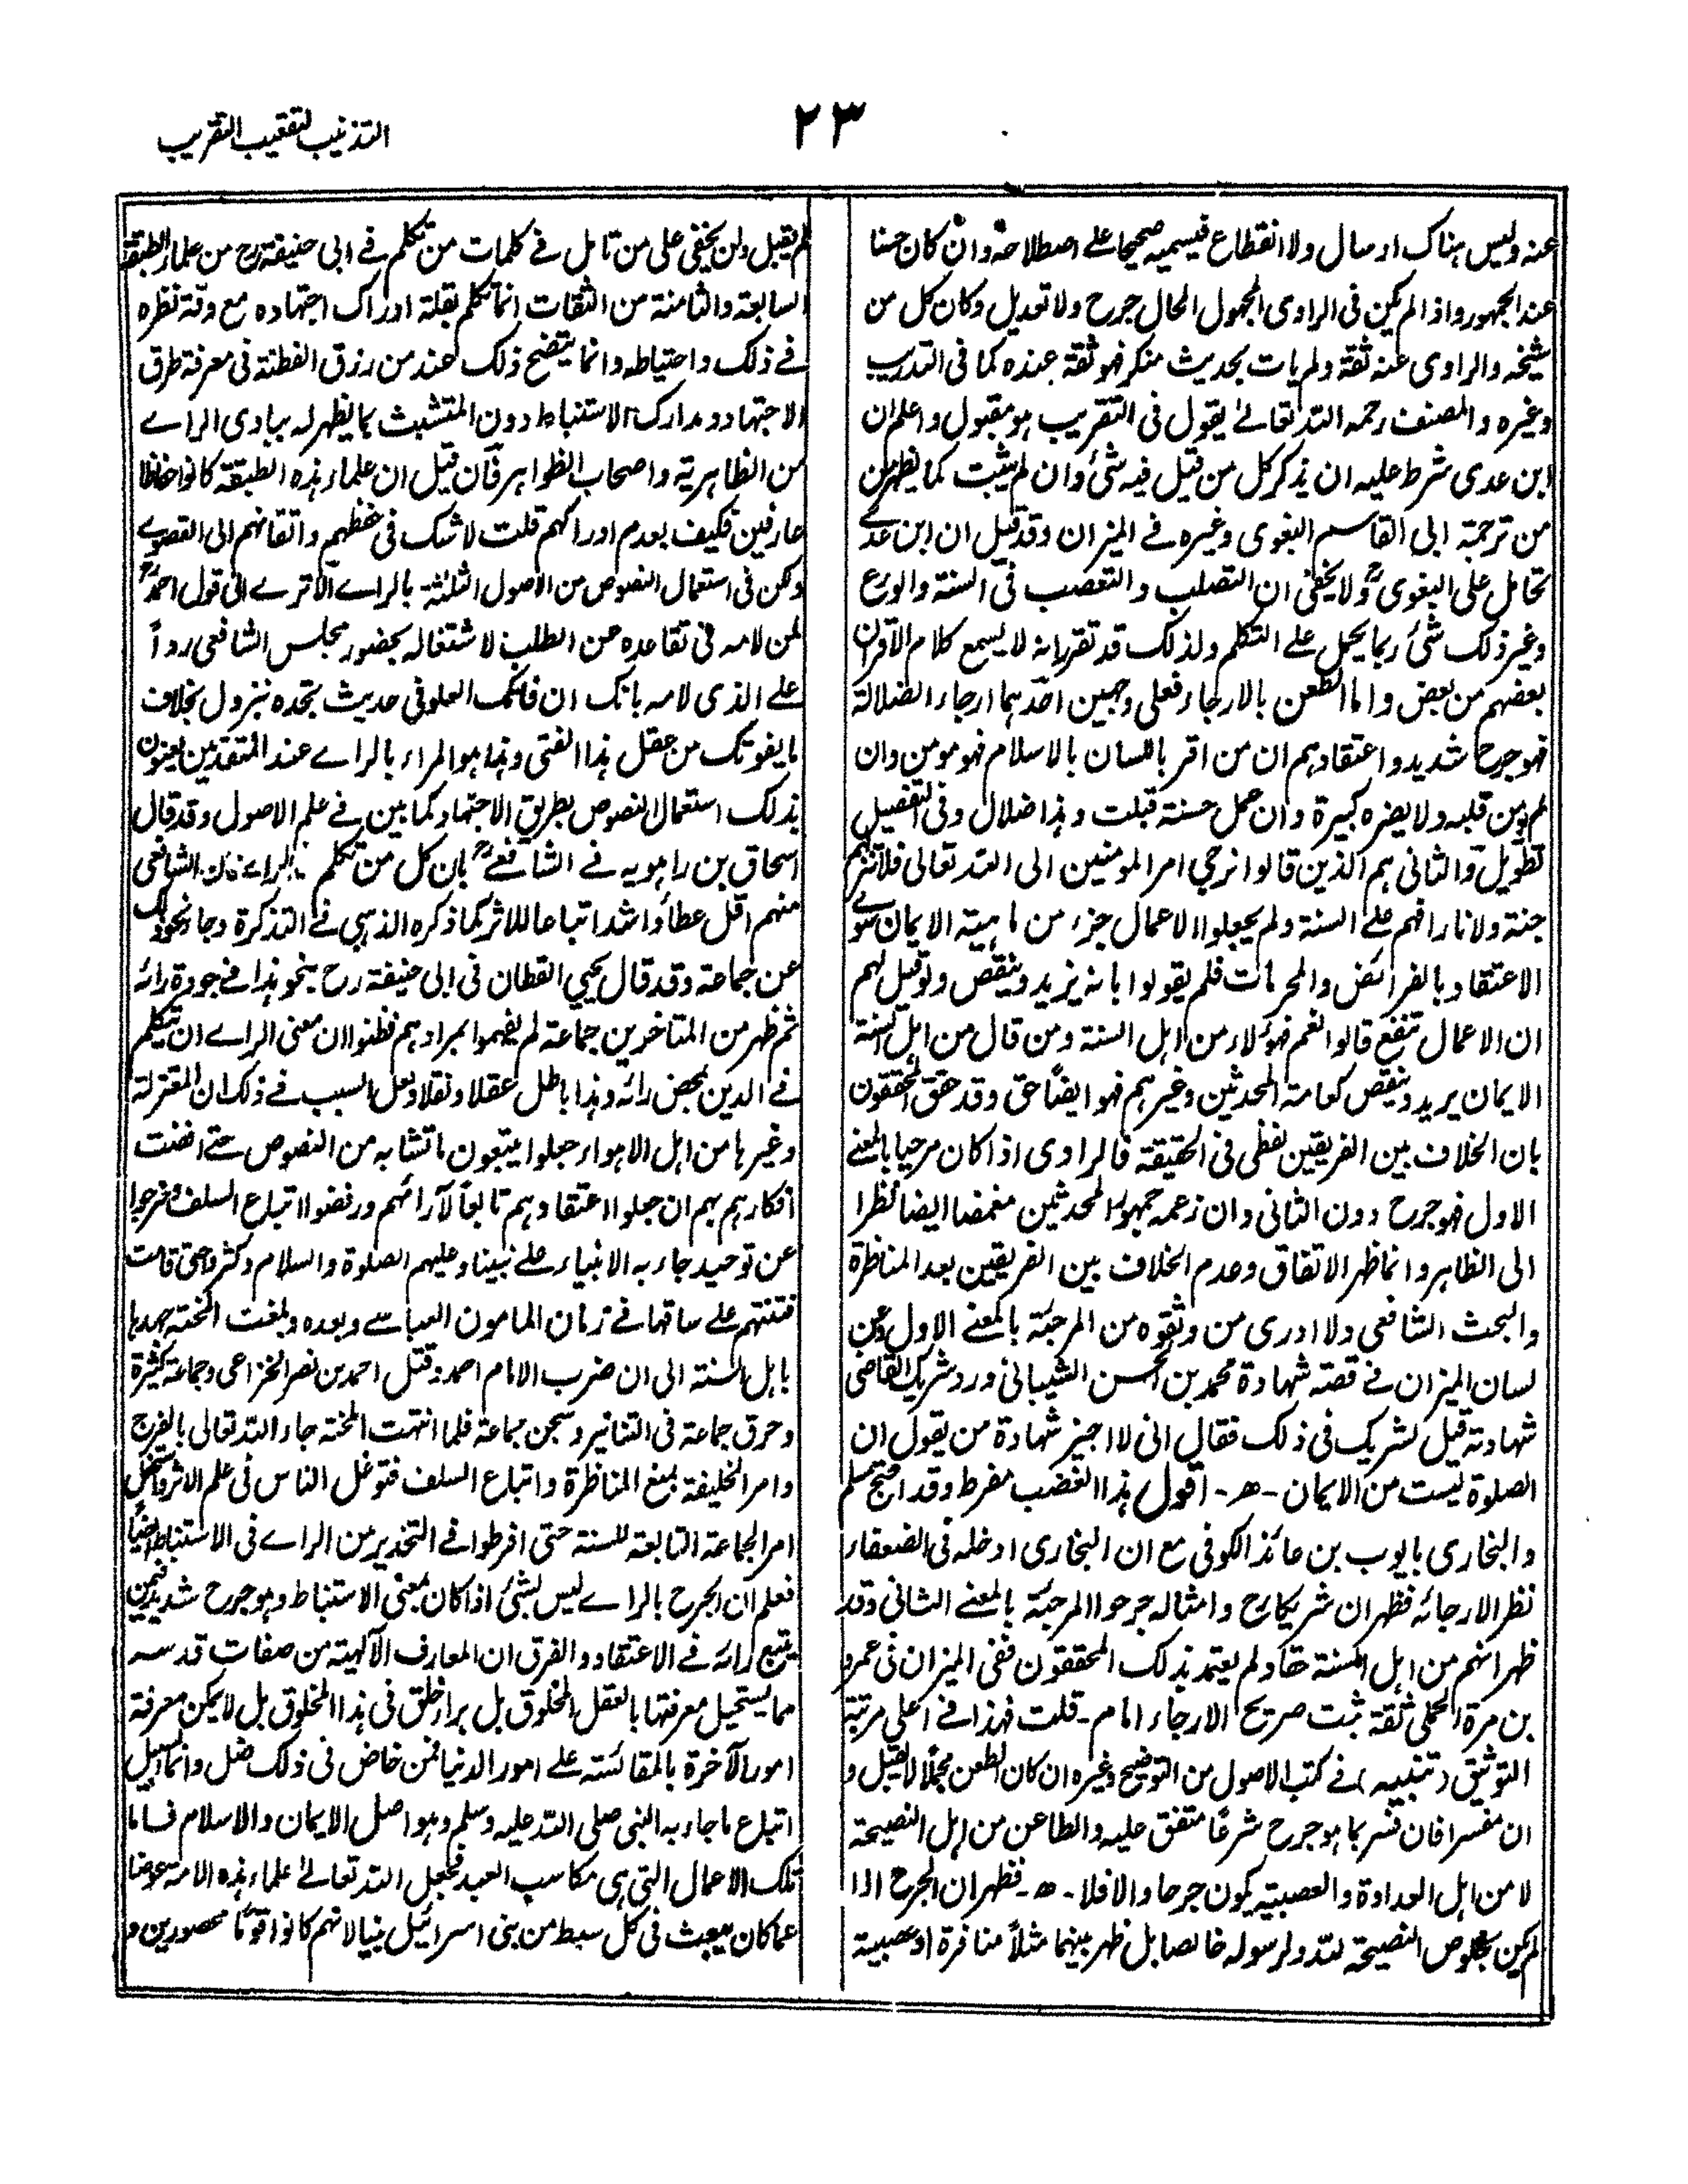 ٢٣
التذنيب لتعقيب التقريب
عنه وليس هناك ارسال ولا انقطاع فيسميه صحيحا على اصطلاحه وان كان حسنا
عند الجمهور واذا لم يكن فى الراوى المجهول الحال جرح ولا تعديل وكان كل من
شيخه والراوى عنه ثقة ولم يات بحديث منكر فهو ثقة عنده كما فى التدريب
وغيره والمصنف رحمه الله تعالى يقول فى التقريب هو مقبول واعلم ان
ابن عدى شرط عليه ان يذكر كل من قيل فيه شئ وان لم يثبت كما يظهر من
من ترجمة ابى القاسم البغوى وغيره فے الميزان وقد قيل ان ابن عدے
تحامل على البغوىؒ ولا يخفى ان التصلب والتعصب فى السنة والورع
وغير ذلك شئ ربما يحمل على التكلم ولذلك قد تقرر انه لا يسمع كلام الاقران
بعضهم من بعض واما الطعن بالارجاء فعلى وجهين احدهما ارجاء الضلالة
فهو جرح شديد واعتقادهم ان من اقر باللسان بالاسلام فهو مومن وان
لم يومن قلبه ولا يضره كبيرة وان عمل حسنة قبلت وهذا ضلال وفى التفصيل
تطويل والثانى هم الذين قالوا نرجي امر المومنين الى الله تعالى فلا ننزلهم
جنة ولا نارا فهم على السنة ولم يجعلوا الاعمال جزء من ماهية الايمان سوے
الاعتقاد بالفرائض والمحرمات فلم يقولوا بانه يزيد وينقص ولو قيل لهم
ان الاعمال تنفع قالوا نعم فهؤلاء من اهل السنة ومن قال من اهل السنة
الايمان يريد وينقص كعامة المحدثين وغيرهم فهو ايضًا حق وقد حقق المحققون
بان الخلاف بين الفريقين لفظى فى الحقيقة فالراوى اذا كان مرجيا بالمعنے
الاول فهو جرح دون الثانى وان زعمه جمهور المحدثين منغمضا ايضا نظرا
الى الظاهر وانما ظهر الاتفاق وعدم الخلاف بين الفريقين بعد المناظرة
والبحث الشافعى ولا ادرى من وثقوه من المرجئة بالمعنے الاول وعن
لسان الميزان فے قصة شهادة محمد بن الحسن الشيبانى ورد شريك القاضى
شهادته قيل لشريك فى ذلك فقال انى لا اجيز شهادة من يقول ان
الصلوة ليست من الايمان -ھ- اقول هذا الغضب مفرط وقد احتج مسلم
والبخارى بايوب بن عائذ الكوفى مع ان البخارى ادخله فى الضعفاء
نظر الارجائه فظهر ان شريكا رح وامثاله جرحوا المرجئة بالمعنے الثانى وقد
ظهر انهم من اهل السنة حقا ولم يعتمد بذلك المحققون ففى الميزان فى عمرو
بن مرة الجملى ثقة ثبت صريح الارجاء امام - قلت فهذا فے اعلى مرتبة
التوثيق (تنبيه) فے كتب الاصول من التوضيح وغيره ان كان الطعن مجملا لا يقبل و
ان مفسرا فان فسر بما هو جرح شرعًا متفق عليه والطاعن من اهل النصيحة
لا من اهل العداوة والعصبية يكون جرحا والا فلا -ھ- فظهر ان الجرح اذا
لم يكن بخلوص النصيحة لله ولرسوله خالصا بل ظهر بينهما مثلاً منافرة او عصبية
لم يقبل ولن يخفى على من تامل فے كلمات من تكلم فے ابى حنيفة رح من علماء الطبقة
السابعة والثامنة من الثقات انما تكلم بقلة ادراك اجتهاده مع دقة نظره
فے ذلك واحتياطه وانما يتضح ذلك عند من رزق الفطنة فى معرفة طرق
الاجتهاد ومدارك الاستنباط دون المتشبث بما يظهر له ببادى الراے
من الظاهرية واصحاب الظواهر فان قيل ان علماء هذه الطبقة كانوا حفاظا
عارفين فكيف بعدم ادراكهم قلت لا شك فى حفظهم واتقانهم الى القصوے
ولكن فى استعمال النصوص من الاصول الثلثة بالراے الا ترے الى قول احمدؒ
لمن لامه فى تقاعده عن الطلب لاشتغاله بحضور مجلس الشافعى رداً
على الذى لامه بانك ان فاتك العلو فى حديث تجده بنزول بخلاف
ما يفوتك من عقل هذا الفتى وهذا هو المراد بالراے عند المتقدمين يعنون
بذلك استعمال النصوص بطريق الاجتهاد كما بين فے علم الاصول وقد قال
اسحاق بن راهويه فے الشافعےؒ بان كل من تكلم بالراے فان الشافعى
منهم اقل خطأ واشد اتباعا للاثر كما ذكره الذهبى فے التذكرة وجاء نحو ذلك
عن جماعة وقد قال يحيي القطان فى ابى حنيفة رح بنحو هذا فے جودة رائه
ثم ظهر من المتاخرين جماعة لم يفهموا بمرادهم فظنوا ان معنى الراے ان يتكلم
فے الدين بمحض رائه وهذا باطل عقلا ونقلا ولعل السبب فے ذلك ان المعتزلة
وغيرها من اهل الاهواء جعلوا يتبعون ما تشابه من النصوص حتے افضت
افكارهم بهم ان جعلوا اعتقادهم تابعاً لآرائهم ورفضوا اتباع السلف فخرجوا
عن توحيد جاء به الانبياء على نبينا وعليهم الصلوة والسلام وكثروا حتى قامت
فتنتهم على ساقها فے زمان المامون العباسے وبعده وبلغت المحنة جهدها
باهل السنة الى ان ضرب الامام احمد وقتل احمد بن نصر الخزاعى وجماعة كثيرة
وحرق جماعة فى التنانير وسجن جماعة فلما انتهت المحنة جاء الله تعالى بالفرج
وامر الخليفة بمنع المناظرة واتباع السلف فتوغل الناس فى علم الاثر
امر الجماعة التابعة للسنة حتى افرطوا فے التحذير من الراے فى الاستنباط ايضًا
فعلم ان الجرح بالراے ليس بشئ اذا كان بمعنى الاستنباط وهو جرح شديد فيمن
يتبع رائه فے الاعتقاد والفرق ان المعارف الآلهية من صفات قدسه
مما يستحيل معرفتها بالعقل المخلوق بل براء خلق فى هذا المخلوق بل لا يمكن معرفة
امور الآخرة بالمقائسة على امور الدنيا فمن خاض فى ذلك ضل وانما السبيل
اتباع ما جاء به النبى صلى الله عليه وسلم وهو اصل الايمان والاسلام فاما
تلك الاعمال التى هى مكاسب العبد فجعل الله تعالى علماء هذه الامة عوضا
عما كان يبعث فى كل سبط من بنى اسرائيل نبيا لانهم كانوا قومًا محصورين و